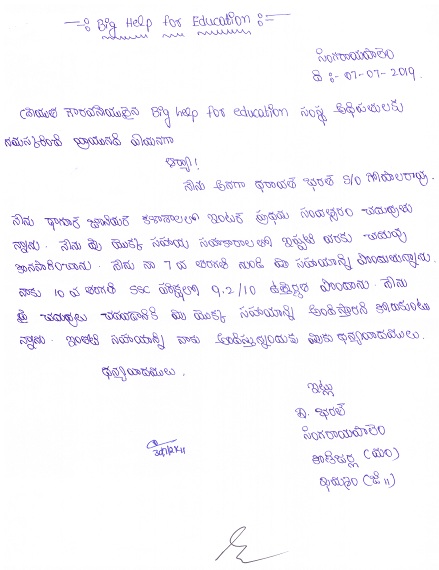 —:: Big Help for Education ::—
సింగరాయపాలెం
ది :- 07-07-2019.
గౌరవనీయులైన Big help for education సంస్థ అధిపతులకు
నమస్కరించి వ్రాయునది ఏమనగా
అయ్యా!
నేను అనగా భరత్ S/O గోపాలరావు.
నేను జూనియర్ కళాశాలలో ఇంటర్ ప్రథమ సంవత్సరం చదువుతు
న్నాను. నేను మీ యొక్క సహాయ సహకారాలతో ఇప్పటి వరకు చదువు
కొనసాగించాను. నేను నా 7 వ తరగతి నుండి మీ సహాయాన్ని పొందుతున్నాను.
నాకు 10 వ తరగతి SSC పరీక్షలో 9.2/10 ఉత్తీర్ణత పొందాను. నేను
పై చదువులు చదవడానికి మీ యొక్క సహాయాన్ని అందిస్తారని కోరుకుంటు
న్నాను. ఇంతటి సహాయాన్ని నాకు అందిస్తున్నందుకు మీకు ధన్యవాదములు.
ధన్యవాదములు.
ఇట్లు
భరత్
సింగరాయపాలెం
(మం)
(జి॥)